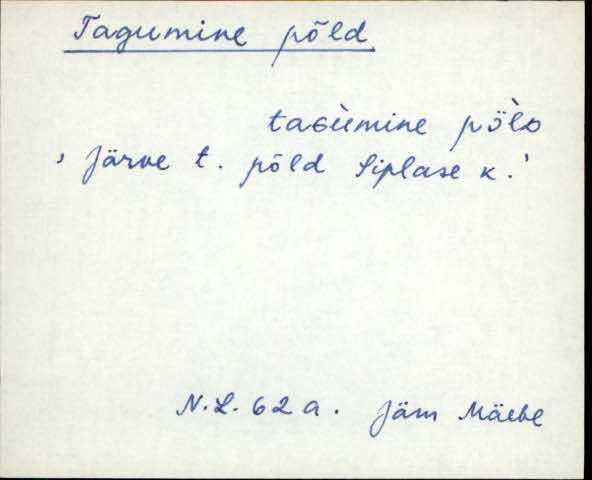 Tagumine põld
taɢùmine pö̀lᴅ
' Järve t. põld Siplase k.'
N.L. 62 a. Jäm Mäebe